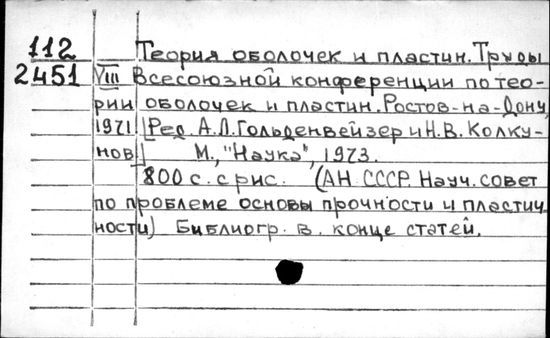 112 Теория оболочек и пластин. Труды
2451 VIII Всесоюзной конференции по тео-
рии оболочек и пластин. Ростов-на-Дону,
1971 [Ред. А.Л. Гольденвейзер и Н.В. Колку-
нов] М., "Наука", 1973.
800 с. с рис. (АН СССР. Науч. совет
по проблеме основы прочности и пластич
ности) Библиогр. в. конце статей.